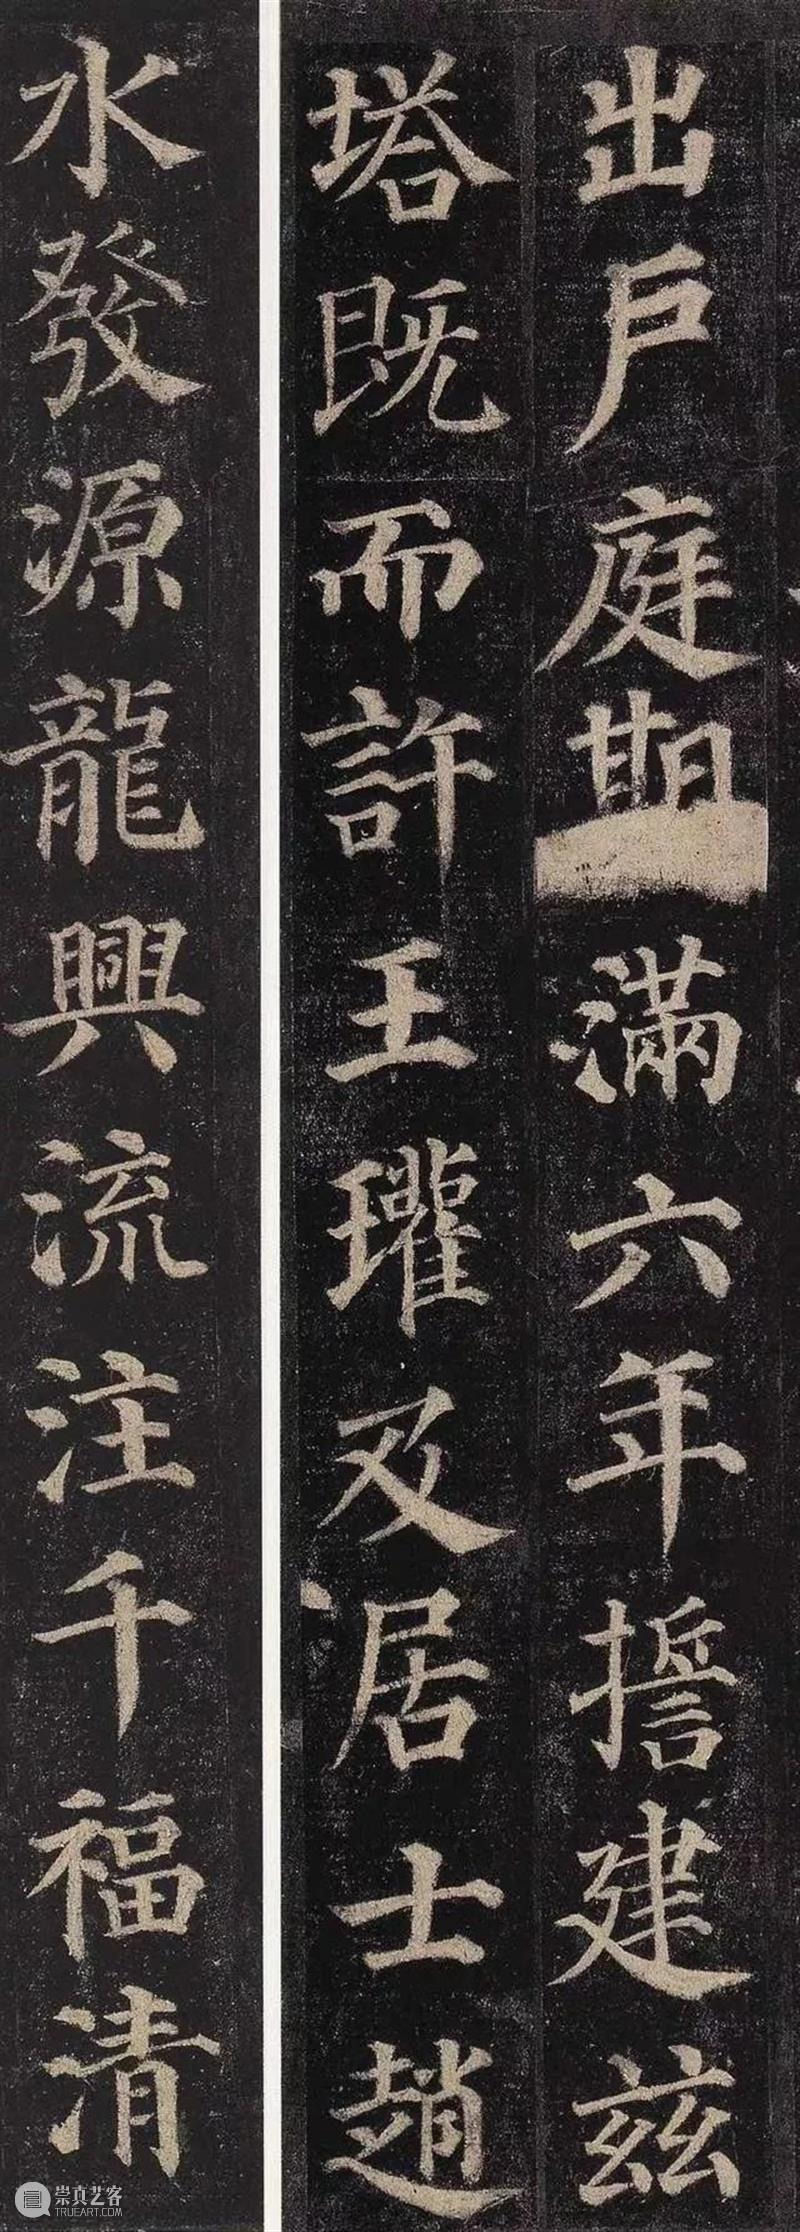 出戶庭期滿六年誓建茲
塔既而許王瓘及居士趙
水發源龍興流注千福清
崇真艺客
TRUEART.COM